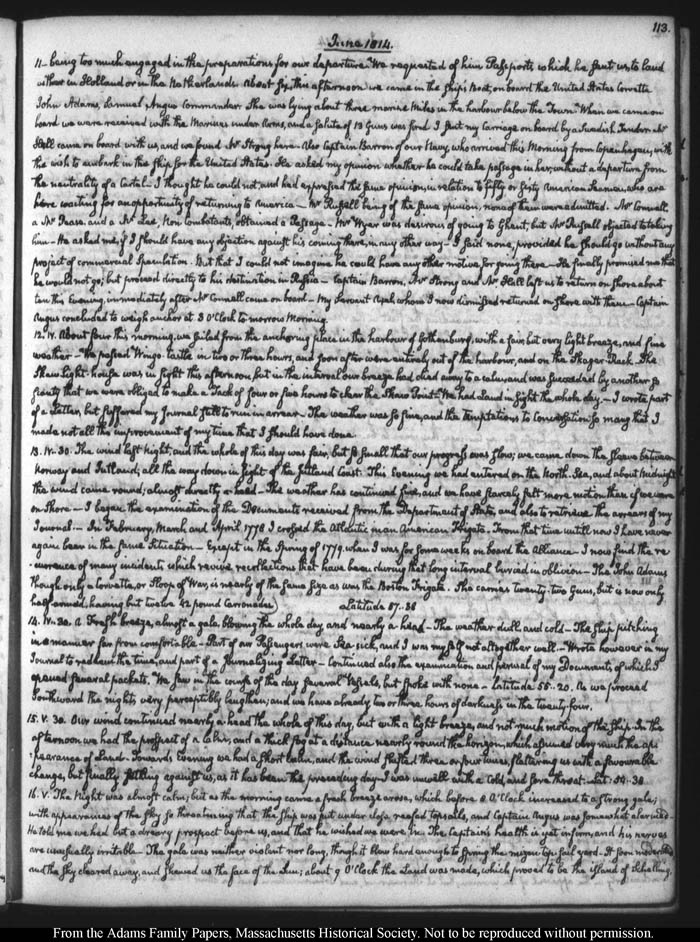 113.
June 1814.
11- being too much engaged in the preparations for our departure. We requested of him Passports which he sent us, to land
either in Holland or in the Netherlands. About six this afternoon we came in the ship's Boat, on board the United States Corvette
John Adams, Samuel Angus Commander. She was lying about three marine Miles in the harbour below the Town. When we came on
board we were received with the Marines under Arms, and a Salute of 18 Guns was fired. I sent my Carriage on board by a Swedish Tender. Mr
Hall came on board with us, and we found Mr Strong here. Also Captain Barron of our Navy, who arrived this Morning from Copenhagen, with
the wish to embark in this ship for the United States. He asked my opinion whether he could take passage in her without a departure from
the neutrality of a Cartel. I thought he could not, and had expressed the same opinion, in relation to fifty or sixty American Seamen, who are
here waiting for an opportunity of returning to America - Mr Russell being of the same opinion, none of them were admitted. Mr Connell,
a Mr and a Mr Lee, Non Combatants, obtained a Passage - Mr Wyer was desirous of going to Ghent, but Mr Russell objected to taking
him - He asked me, if I should have any objection against his coming there, in any other way - I said none, provided he should go without any
project of commercial Speculation. But that I could not imagine he could have any other motive for going there - He finally promised me that
he would not go; but proceed directly to his destination in Russia - Captain Barron, Mr Strong and Mr Hall left us to return on shore about
ten this Evening, immediately after Mr Connell came on board - My Servant whom I now dismissed returned on shore with them - Captain
Angus concluded to weigh anchor at 3 O'Clock to-morrow Morning.
12. IV. About four this morning, we sailed from the anchoring place in the harbour of Gothenburg, with a fair but very light breeze, and fine
weather - We passed Wingo-Castle in two or three hours, and soon after were entirely out of the harbour, and on the Skager-Rack. The
Skaw Light-house was in sight this afternoon, but in the interval our breeze had died away to a calm, and was succeeded by another so
scanty that we were obliged to make a Tack of four or five hours to clear the Skaw Point. We had Land in sight the whole day. - I wrote part
of a Letter, but suffered my Journal still to run in arrear - The weather was so fine, and the temptations to Conversation so many that I
made not all the improvement of my time that I should have done.
13. IV.30. The wind last Night, and the whole of this day was fair, but so small that our progress was slow; we came down the Sleeve between
Norway and Jutland; all the way down in sight of the Jutland Coast. This Evening we had entered on the North-Sea, and about midnight
the wind came round, almost directly a-head - The weather has continued fine, and we have scarcely felt more motion than if we were
on Shore - I began the examination of the Documents received from the Department of State, and also to retrieve the arrears of my
Journal. - In February, March, and April 1778 I crossed the Atlantic in an American Frigate. From that time until now I have never
again been in the same Situation - Except in the Spring of 1779. when I was for some weeks on board the Alliance - I now find the re
-currence of many incidents which revive recollections that have been during that long interval buried in oblivion - The John Adams
though only a Corvette, or Sloop of War, is nearly of the same size as was the Boston Frigate. She carries twenty-two Guns, but is now only
half-armed, having but twelve 42 pound Carronades Latitude 57.. 38
14. IV.30. A Fresh breeze, almost a gale, blowing the whole day and nearly a-head - The weather dull and cold - The ship pitching
in a manner far from comfortable - Part of our Passengers were Sea-sick, and I was myself not altogether well - Wrote however in my
Journal to redeem the time, and part of a Journalizing Letter - Continued also the examination and perusal of my Documents, of which I
opened several packets. We saw in the course of the day several Vessels, but spoke with none - Latitude 56.. 20. As we proceed
Southward the nights, very perceptibly lengthen, and we have already two or three hours of darkness in the twenty-four.
15. V.30. Our wind continued nearly a head the whole of this day, but with a light breeze, and not much motion of the Ship. In the
afternoon we had the prospect of a calm, and a thick fog at a distance nearly round the horizon, which assumed very much the ap-
pearance of Land. Towards Evening we had a short calm, and the wind shifted three or four times, flattering us with a favourable
change, but finally settling against us, as it has been the preceding day - I was unwell with a Cold, and sore throat. Lat: 54 - 38
16. V. The Night was almost calm; but as the morning came a fresh breeze arose, which before 8 O'Clock increased to a strong gale;
with appearances of the Sky so threatning that the Ship was put under close reefed topsails, and Captain Angus was somewhat alarmed -
He told me we had but a dreary prospect before us, and that he wished we were in. The Captain's health is yet infirm, and his nerves
are unusually irritable - The gale was neither violent nor long, though it blew hard enough to spring the mizen top-sail yard. It soon moderated,
and the sky cleared away, and shewed us the face of the Sun; about 9 O'Clock the Land was made, which proved to be the island of Schelling.
From the Adams Family Papers, Massachusetts Historical Society. Not to be reproduced without permission.